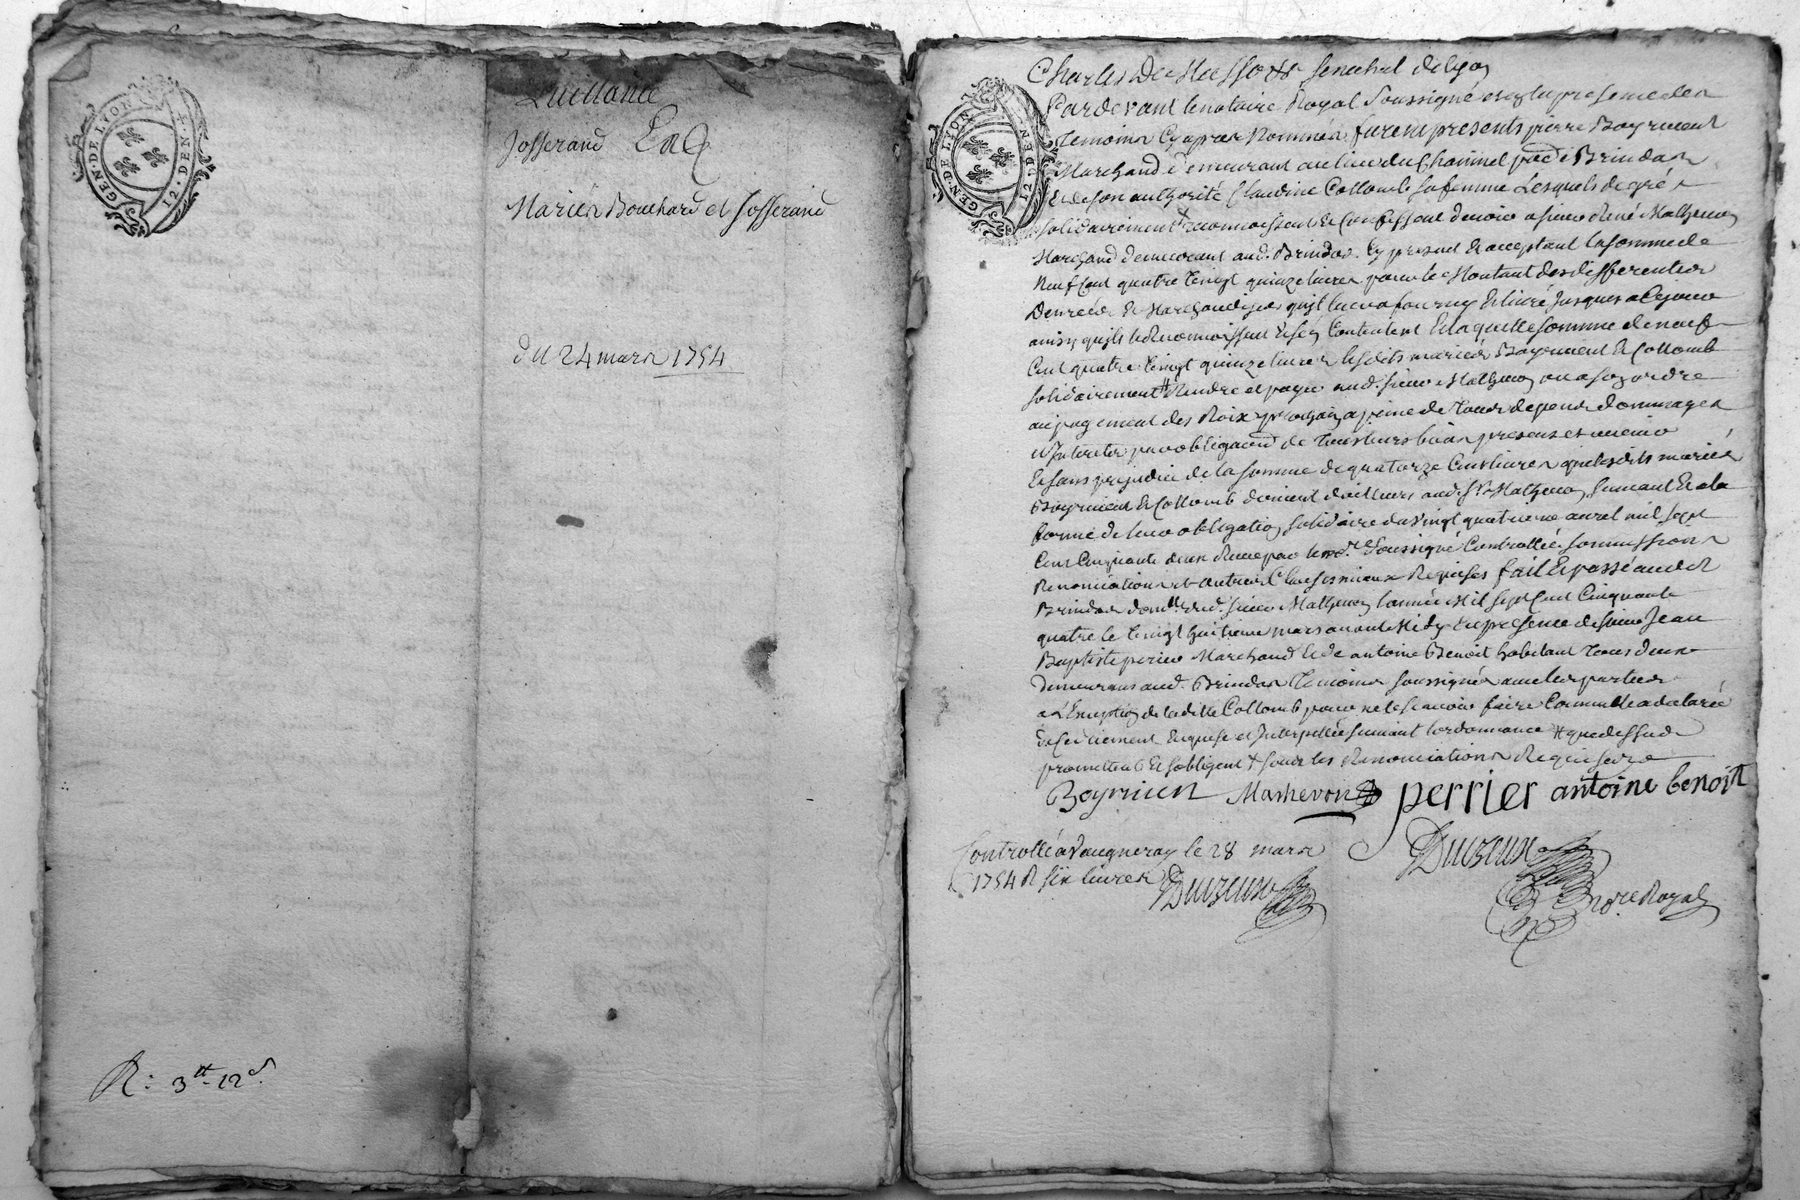 GEN·DE LYON
12·DEN·
Quittance
Josserand
Mariés Bouchard et Josserand
du 24 mars 1754
R: 3tt-12s.
GEN·DE LYON
12 DEN·
Charles De Masso senechal de lyon
Pardevant le notaire Royal Soussigné et en la presence des
temoins cy apres nommés furent presents pierre Boyrivent
Marchand demeurant au lieu du Chaninel psse de Brindas
& de son authorité Claudine Collomb sa femme Lesquels de gré
solidairement + reconnoissent & confessent devoir a sieur René Mathevon
Marchand demeurant aud. Brindas cy present & acceptant la somme de
neuf cent quatre vingt quinze livres pour le Montant des differentes
Denrées & Marchandises qu'il leur a fourny & livré Jusques a ce jour
ainsy qu'ils le Reconnoissent & s'en contentent & laquelle somme de neuf
Cent quatre vingt quinze livres lesdits mariés Boyrivent & Collomb
solidairement # Rendre et payer aud. sieur Mathevon ou a son ordre
au payement des Roix prochain a peine de tous depens dommages
et Interets par obligaon de tous leurs biens presents et avenir
& sans prejudice de la somme de quatorze Cent livres que lesdits mariés
Boyrivent & Collomb doivent d'ailleurs aud. Sr Mathevon suivant & a la
forme de leur obligation solidaire du vingt quatrieme avril mil sept
Cent Cinquante deux Recue par le nore Soussigné Controllée soumissions
Renonciations et autres Clauses mieux Requises fait & passé aud.
Brindas domlle dud. sieur Mathevon l'année Mil sept Cent Cinquante
quatre le vingt huitieme mars avant Midy En presence de sieur Jean
Baptiste perier Marchand & de antoine Benoit habitant tous deux
demeurans aud. Brindas temoins soussignés avec les parties
a l'Exception de laditte Collomb pour ne le scavoir faire Comme elle a declaré
de ce duement Enquise et Interpellée suivant l'ordonnance # que dessus
promettent & s'obligent + sous les Renonciations Requises
Boyrivent Mathevon perrier antoine benoit
Controllé a Vaugneray le 28 mars
1754 R six livres
Nore Royal